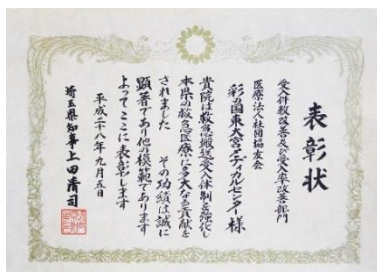 表彰状
受入件数改善及び受入率改善部門
医療法人社団協友会
彩の国東大宮メディカルセンター様
貴院は救急搬送受入体制を強化し
本県の救急医療に多大なる貢献を
されました その功績は誠に
顕著であり他の模範であります
よってここに表彰します
平成二十八年九月五日
埼玉県知事上田清司